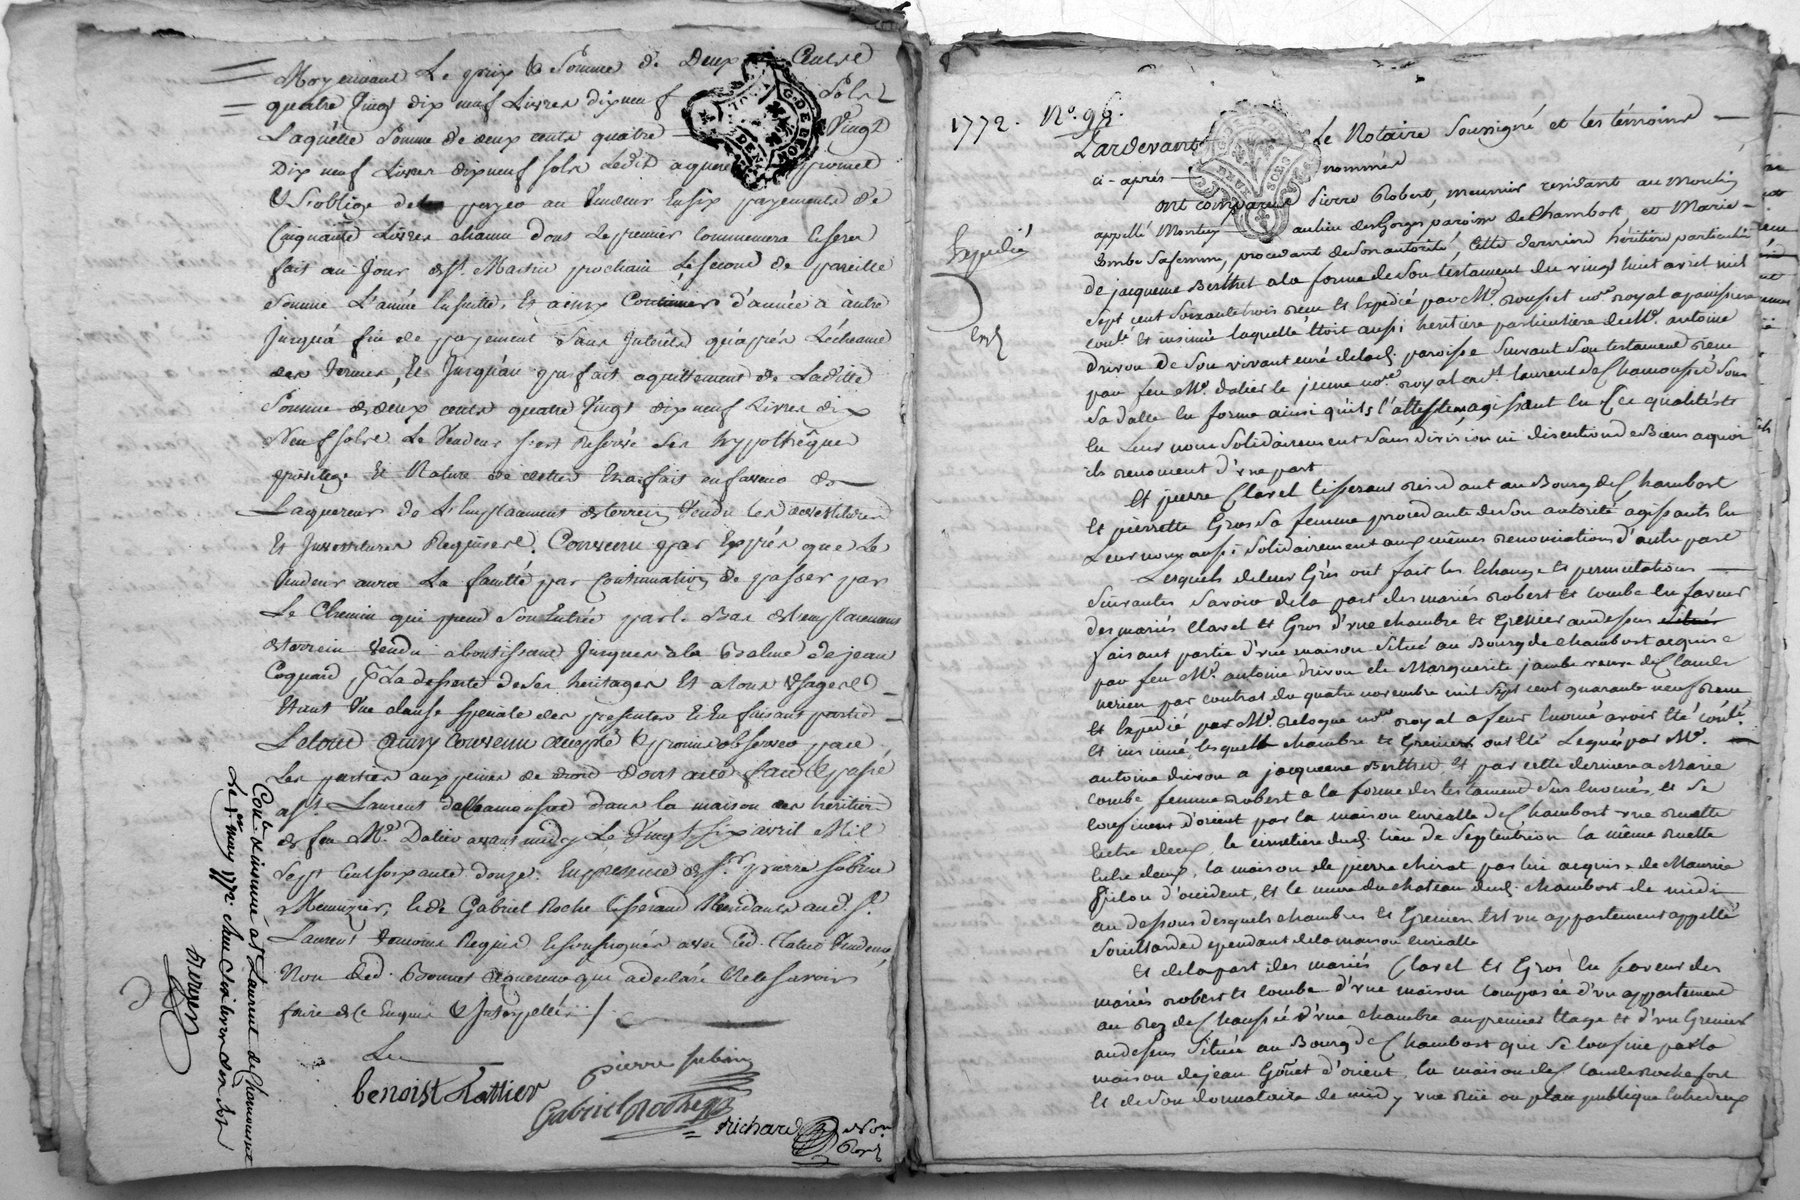 Moyennant Le prix & Somme de Deux Cents
quatre Vingt dix neuf Livres dixneuf Sols
Laquelle Somme de deux cents quatre Vingt
Dix neuf Livres dixneuf sols Ledit promet
& S'oblige de payer au Vendeur En six payements de
Cinquante Livres chacun dont Le premier Commencera Et sera
fait au Jour de St. Martin prochain Le second de pareille
Somme L'année Ensuitte, Et ainsy Continuer d'année a autre
Jusqu'à fin de payement Sans Interêts qu'après L'écheance
des termes, Et Jusqu'au parfait aquittement de Laditte
Somme de deux cents quatre Vingt dix neuf Livres dix
Neuf sols Le Vendeur s'est Reservé Ses hypothêque
privilege Et Nature de
Laquereur de L'Emplacement de terrein Vendu
Et Investitures Requises. Convenu par Exprés que Le
Vendeur aura La faculté par Continuation de passer par
Le Chemin qui prend Son Entrée par le Bas de L'emplacement
de terrein Vendu aboutissant Jusques a la Balme de jean
Coquard pr. La desserte de Ses heritages Et a tous Usages
Etant Une clause speciale des presentes Et En faisant partie
Le tout Ainsy Convenu accepté & promis observer par
Les parties aux peines de droit dont acte fait & passé
a St. Laurent de Chamousset dans la maison des héritiers
de feu Me. Dalier avant midy Le Vingt six avril Mil
Sept Cent soixante douze. En presence de Sr. pierre Subrin
Menuzier, & de Gabriel Roche tisserand Residants aud. St.
Laurent temoins Requis Et soussignés avec led. Vendeur,
Non led. Bonnet aquereur qui a declaré Ne le Savoir
faire de ce Enquis & Interpellé ./.
benoist Lattier
pierre subrin
Gabriel roche
Richard
Conlé. & insinué a St. Laurent de Chamousset
Le 1er. may 1772.
1772. No. 98.
Pardevant Le Notaire Soussigné et les témoins
ci-après nommés
ont comparus Pierre Robert, meunier residant au moulin
appellé au lieu des Gorges paroisse de Chambost, et Marie
Combe sa femme, procedant de son autorité, Cette derniere héritiere particuliere
de jacqueme Berthet a la forme de son testament du vingt huit avril mil
sept cent soixante trois reçu Et Expédié par Me. rousset nore. royal
conlé Et insinué laquelle étoit aussi heritiere particuliere de Me. antoine
drivon de Son vivant curé de lad. paroisse Suivant Son testament reçu
par feu Me. dalier le jeune nore. royal a St. laurent de Chamousset Sous
Sa datte En forme ainsi qu'ils l'attestent, agissant En ces qualités Et
En Leur nom Solidairement Sans division ni discution de Biens a quoi
ils renoncent d'une part
Expedié
Et pierre Clavel tisserant residant au Bourg de Chambost
Et pierrette Gros Sa femme procedante de Son autorité agissants En
Leur nom aussi Solidairement aux mêmes renonciations d'autre part
Lesquels de leur Grés ont fait les Echanges Et permutations
Suivantes Savoir de la part des mariés robert Et combe En faveur
des mariés Clavel Et Gros d'une chambre Et Grenier au dessus
faisant partie d'une maison Situé au Bourg de Chambost acquise
par feu Me. antoine drivon de Marguerite jambe veuve de Claude
nerien par contrat du quatre novembre mil Sept cent quarante neuf reçu
Et Expedié par Me. Deloque nore. royal avoir Eté conlé
Et insinué, lesquels chambre Et Grenier ont Eté Legués par Me.
antoine drivon a jacqueme Berthet Et par cette derniere a Marie
combe femme robert a la forme des testaments Sus Enoncés, Et Se
confinent d'orient par la maison Curialle de Chambost une ruette
Entre deux, le cimetiere dud. lieu de Septentrion la même ruette
Entre deux, la maison de pierre chirat par lui acquise de Maurice
Pilon d'occident, Et le mur du chateau dud. chambost de midi
au dessous desquels chambre Et Grenier Est un appartement appellé
Souillarde dependant de la maison Curialle
Et de la part des mariés Clavel Et Gros En faveur des
mariés robert Et Combe d'une maison composée d'un appartement
au rez de Chaussée d'une chambre au premier Etage Et d'un Grenier
au dessus Située au Bourg de Chambost qui Se confine par la
maison de jean Goûet d'orient, la maison de Claude rochefort
Et de Son domataire de midy, une rüe ou place publique Entre deux